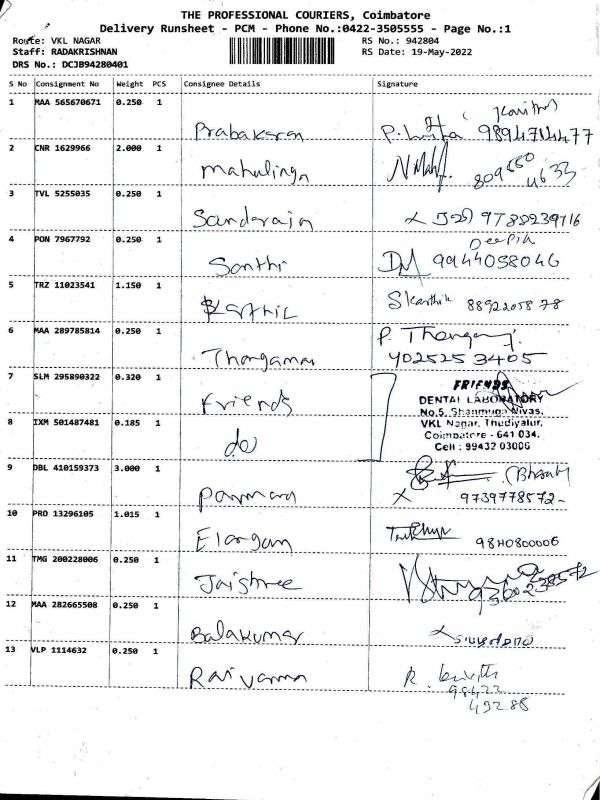 THE PROFESSIONAL COURIERS, Coimbatore
Delivery Runsheet - PCM - Phone No.:0422-3505555 - Page No.:1
Route: VKL NAGAR RS No.: 942804
Staff: RADAKRISHNAN RS Date: 19-May-2022
DRS No.: DCJB94280401
S No Consignment No Weight PCS Consignee Details Signature
1 MAA 565670671 0.250 1
Prabakaran
2 CNR 1629966 2.000 1
Mahalinga
3 TVL 5255035 0.250 1
Sanderain 9788239716
4 PON 7967792 0.250 1 Deepih
Santhi 9944058046
5 TRZ 11023541 1.150 1 Skarthik
Karthic
6 MAA 289785814 0.250 1 P. Thangam
Thangamar
7 SLM 295890322 0.320 1 FRIENDS
Friends DENTAL LABORATORY
No.5, Shanmuga Nivas,
8 IXM 501487481 0.185 1 VKL Nagar, Thudiyalur,
do Coimbatore - 641 034.
Cell : 99432 03006
9 DBL 410159373 3.000 1
Parmara 9739778572
10 PRO 13296105 1.015 1
Elangam
11 TMG 200228006 0.250 1
Jaishree
12 MAA 282665508 0.250 1
Balakumar
13 VLP 1114632 0.250 1
Rai varma